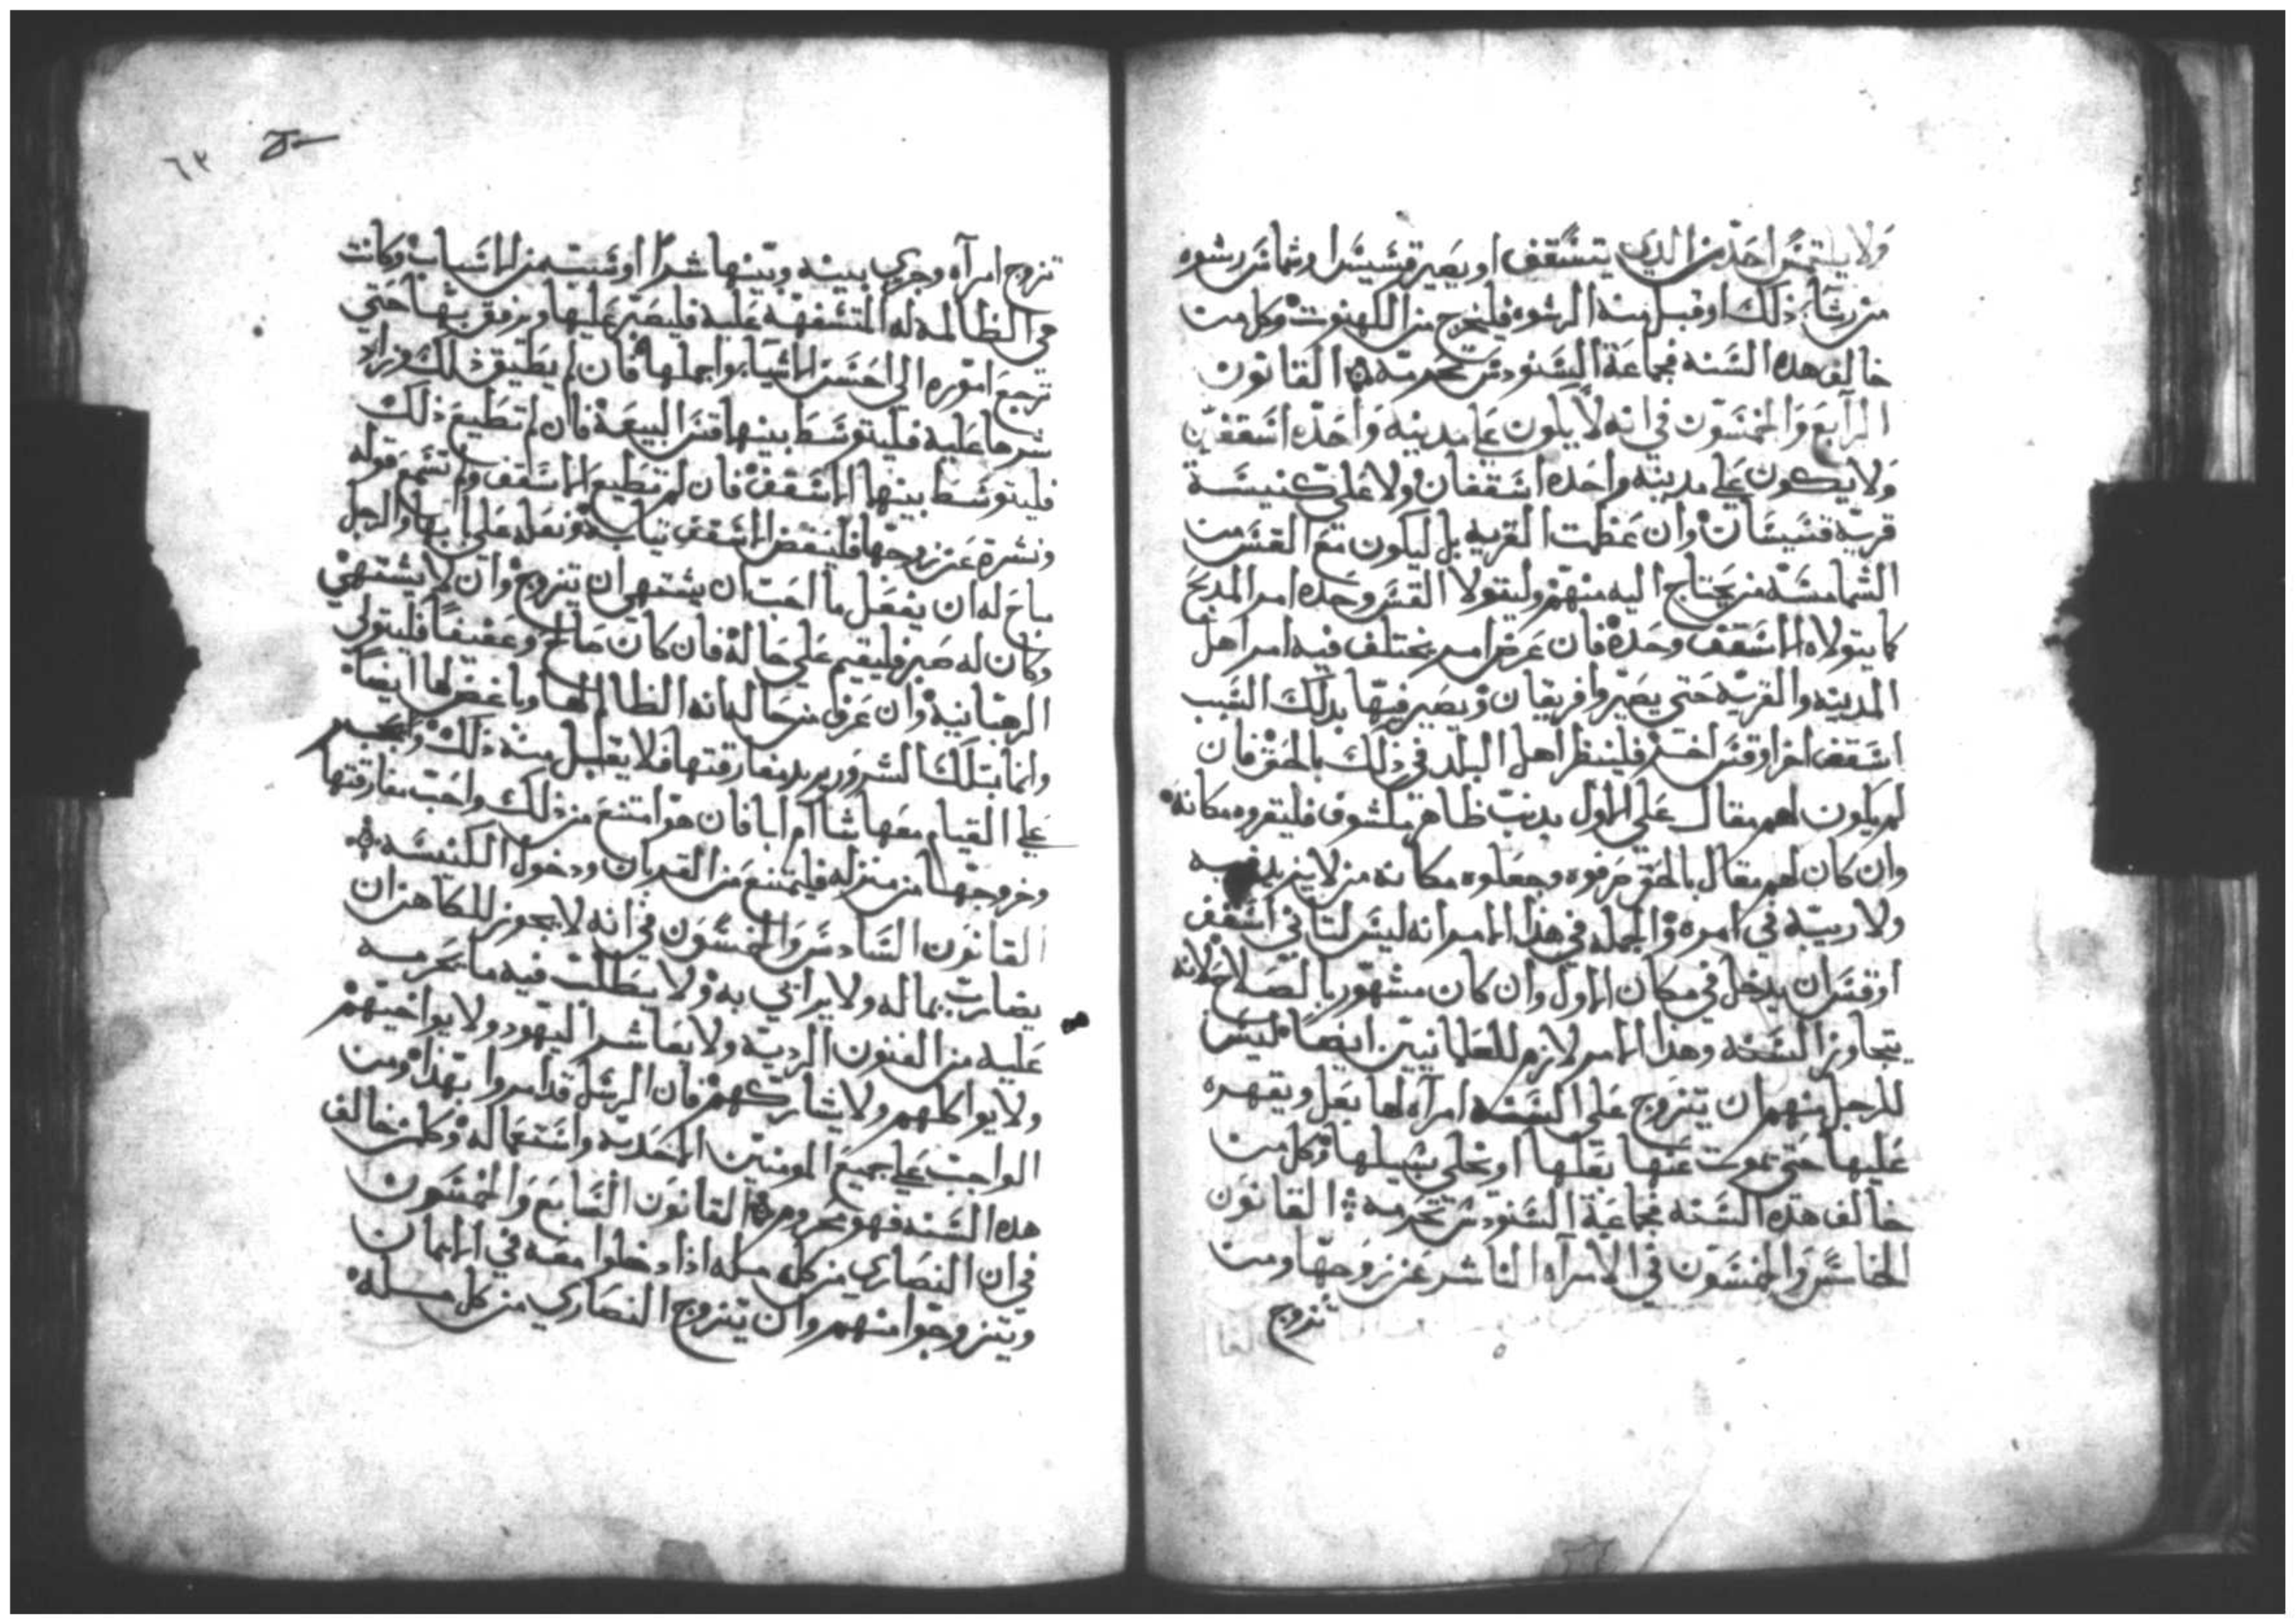 ولا يلتمس احد من الدي يتسقف او يصير قسيسا وشماس رشوه
من رشا ذلك او قبل منه الرشوه فليخرج من الكهنوت وكل من
خالف هده السنه فجماعة السنودس تحرمه القانون
الرابع والخمسون في انه لا يكون على مدينه واحده اسقفين
ولا يكون على مدينه واحده اسقفان ولا على كنيسة
قريه قسيسان وان عظمت القريه بل ليكون مع القس من
الشمامسه من يحتاج اليه منهم وليتولا القس وحده امر المدبح
كما يتولاه الاسقف وحده فان عرض امر يختلف فيه امر اهل
المدينه والقريه حتى يصيروا فريقان ويصير فيها بدلك السبب
اسقف اخر او قس اخر فلينظر اهل البلد في ذلك بالحق فان
لم يكون لهم مقال على الاول بدنب ظاهر مكشوف فليقروه مكانه
وان كان لهم مقال بالحق صرفوه وجعلوه مكانه من لا يزيد فيه
ولا ريبه في امره والجمله في هذا الامر انه ليس لتاني اسقف
او قس ان يدخل في مكان الاول وان كان مشهور بالصلاح لانه
يتجاوز السنه وهذا الامر لازم للعلمانيين ايضا ليس
للرجل منهم ان يتزوج على السنه امرآه لها بعل ويقهره
عليها حتى تموت عنها بعلها او يخلي سبيلها وكل من
خالف هده السنه فجماعة السنودس تحرمه القانون
الخامس والخمسون في الامرآه الناشر عن زوجها ومن
تزوج
٦٢
تزوج امرآه وجري بينه وبينها شرا او شتيمه من الاسباب وكانت
هي الظالمه له المتسفهة عليه فليصبر عليها ويرفق بها حتي
ترجع اموره الى احسن الاشيا واجملها فان لم يطيق ذلك وزاد
شرها عليه فليتوسط بينها قس البيعه فان لم تطيع ذلك
فليتوسط بينها الاسقف فان لم تطيع الاسقف ولم تسمع قوله
ونشزت عن زوجها فلينفض الاسقف تيابه ونعله على بابها والرجل
مباح له ان يفعل ما احب ان يشتهي ان يتزوج وان لا يشتهي
وكان له صبر فليقيم على حاله فان كان صالح وعفيفا فليتولي
الرهبانيه وان عرف من حاله انه الظالم لها وباغضها ايضا
وانما بتلك الشرور يريد مفارقتها فلا يقبل منه ذلك ويجبر
على القيام معها شا ام ابا فان هو امتنع من ذلك واحب مفارقتها
وخروجها من منزله فليمتنع من القربان ودخول الكنيسه
القانون السادس والخمسون في انه لا يجوز للكاهن ان
يضارب بماله ولا يرابي به ولا يطلب فيه ما يحرمه
عليه من الفنون الرديه ولا يعاشرا اليهود ولا يواخيهم
ولا يواكلهم ولا يشاركهم فان الرسل قد امروا بهذا ومن
الواجب على جميع المومنين المحديه واستعماله وكل من خالف
هده السنه فهو محروم القانون السابع والخمسون
في ان النصاري من كل مله اذا دخلوا معه في الايمان
ويتزوجوا منهم وان يتزوج النصاري من كل مله